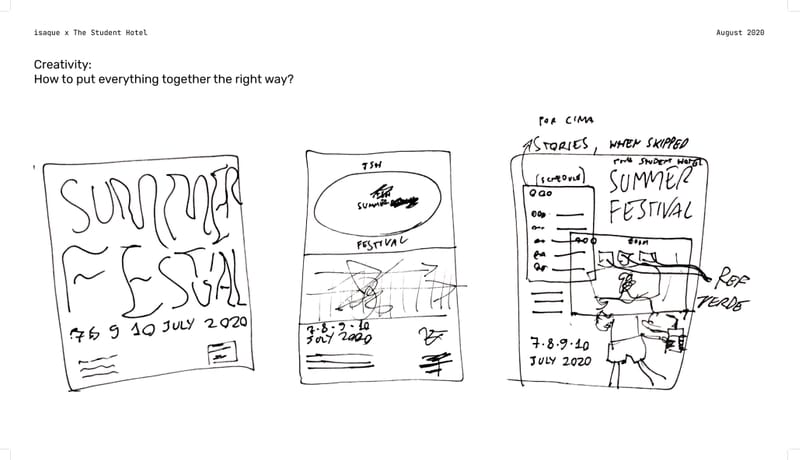 isaque x The Student Hotel
August 2020
Creativity:
How to put everything together the right way?
SUMMER
FESTVAL
7 8 9 10 JULY 2020
TSH
SUMMER
FESTIVAL
7.8.9.10
JULY 2020
POR CIMA
STORIES, WHEN SKIPPED
STUDENT HOTEL
(SCHEDULE)
SUMMER
FESTIVAL
ZOOM
REF
VERDE
7.8.9.10
JULY 2020